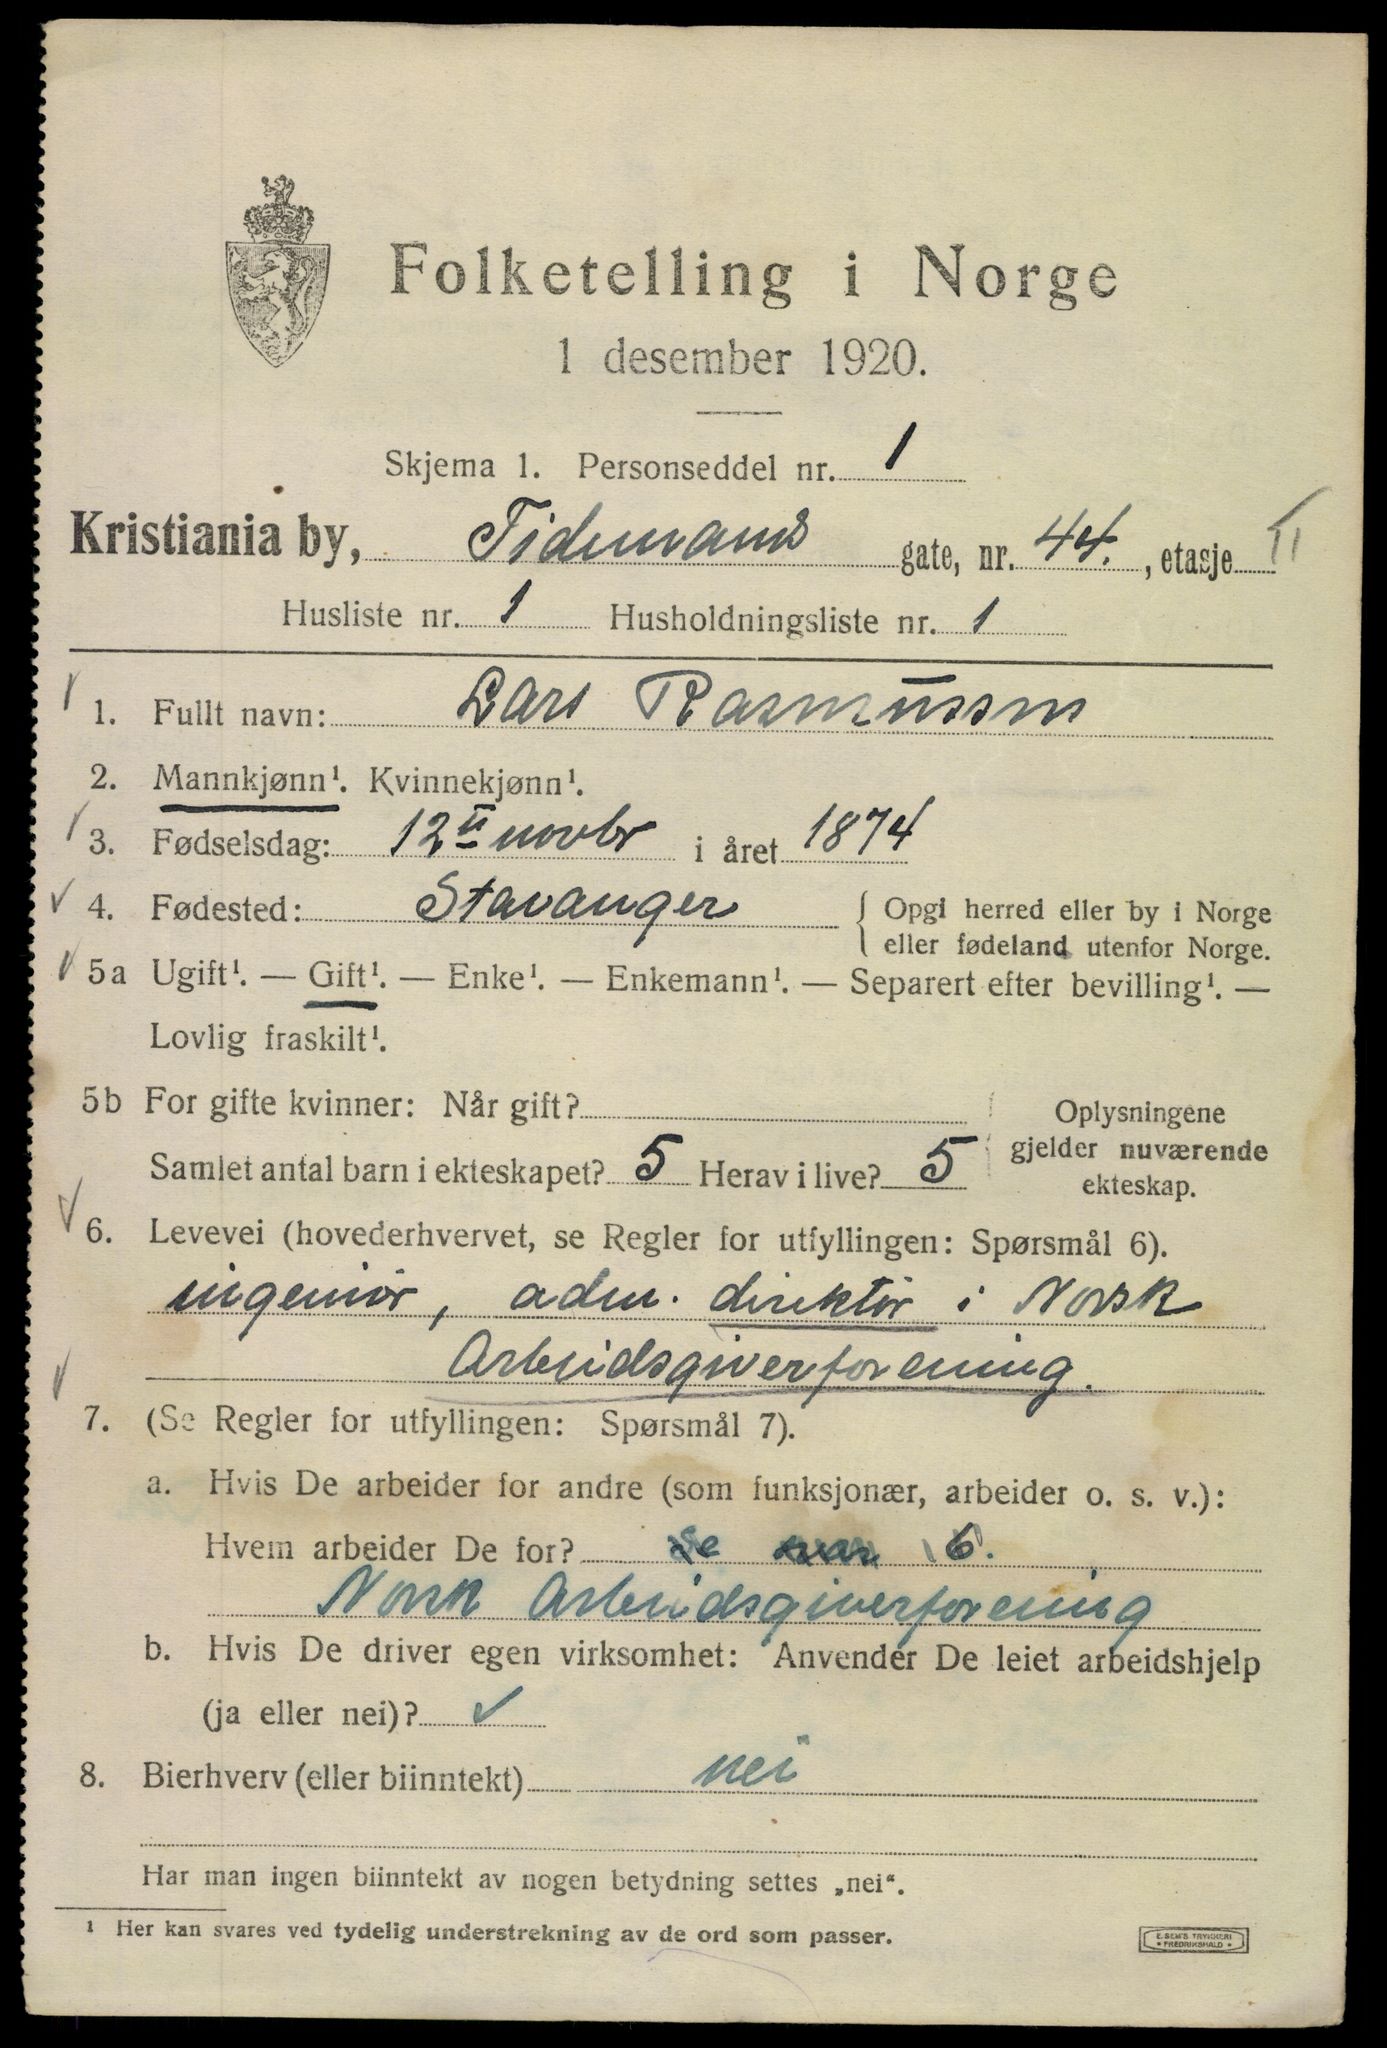 Folketelling i Norge
1 desember 1920.
Skjema 1. Personseddel nr. 1
Kristiania by, Tidemands gate, nr. 44., etasje II
Husliste nr. 1 Husholdningsliste nr. 1
1. Fullt navn: Lars Rasmussen
2. Mannkjønn¹. Kvinnekjønn¹.
3. Fødselsdag: 12 novbr i året 1874
4. Fødested: Stavanger { Opgi herred eller by i Norge
eller fødeland utenfor Norge.
5a Ugift¹. — Gift¹. — Enke¹. — Enkemann¹. — Separert efter bevilling¹. —
Lovlig fraskilt¹.
5b For gifte kvinner: Når gift?
Samlet antal barn i ekteskapet? 5 Herav i live? 5
Oplysningene
gjelder nuværende
ekteskap.
6. Levevei (hovederhvervet, se Regler for utfyllingen: Spørsmål 6).
ingeniør, adm. direktør i Norsk
Arbeidsgiverforening.
7. (Se Regler for utfyllingen: Spørsmål 7).
a. Hvis De arbeider for andre (som funksjonær, arbeider o. s. v.):
Hvem arbeider De for? se svar 6.
Norsk Arbeidsgiverforening
b. Hvis De driver egen virksomhet: Anvender De leiet arbeidshjelp
(ja eller nei)? ✓
8. Bierhverv (eller biinntekt) nei
Har man ingen biinntekt av nogen betydning settes „nei“.
¹ Her kan svares ved tydelig understrekning av de ord som passer.
E. SEM'S TRYKKERI
• FREDRIKSHALD •